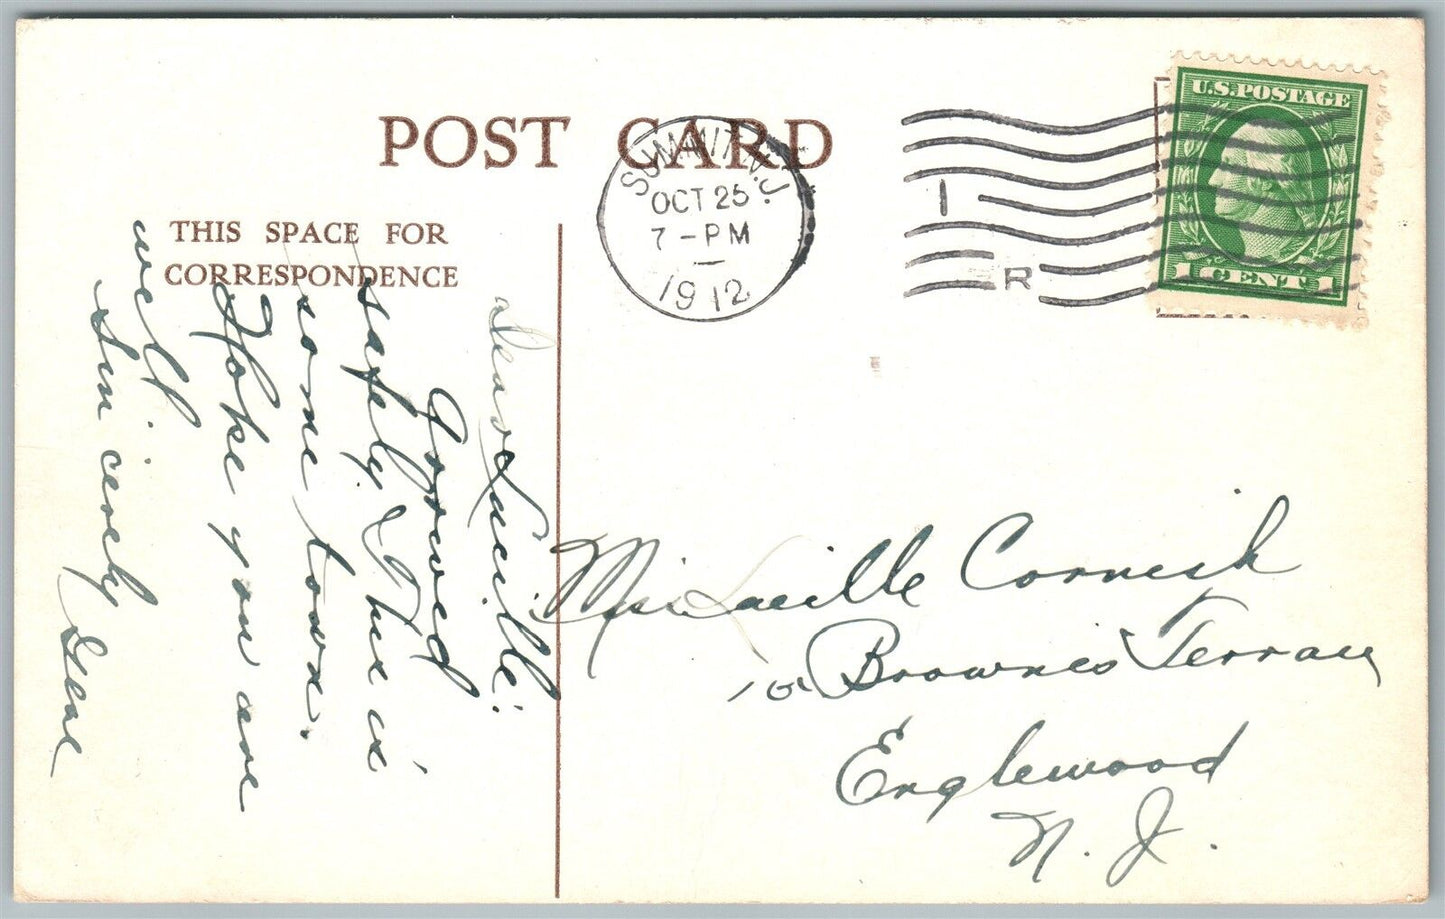 POST CARD
SUMMIT N.J.
OCT 25
7-PM
1912
1
R
U.S.POSTAGE
1 CENT 1
THIS SPACE FOR
CORRESPONDENCE
Dear Lucille:
Arrived
safely. This is
some town.
Hope you are
well.
Sincerely
Miss Lucille Cornish
10 Brownes Terrace
Englewood
N. J.